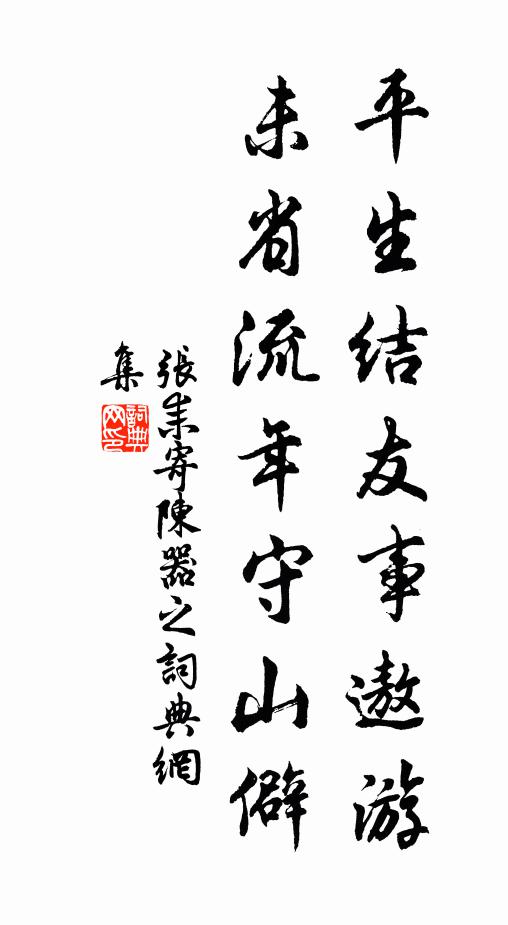 平生结友事遨游
未省流年守山僻
張耒寄陳器之詞典網
集
詞典网印